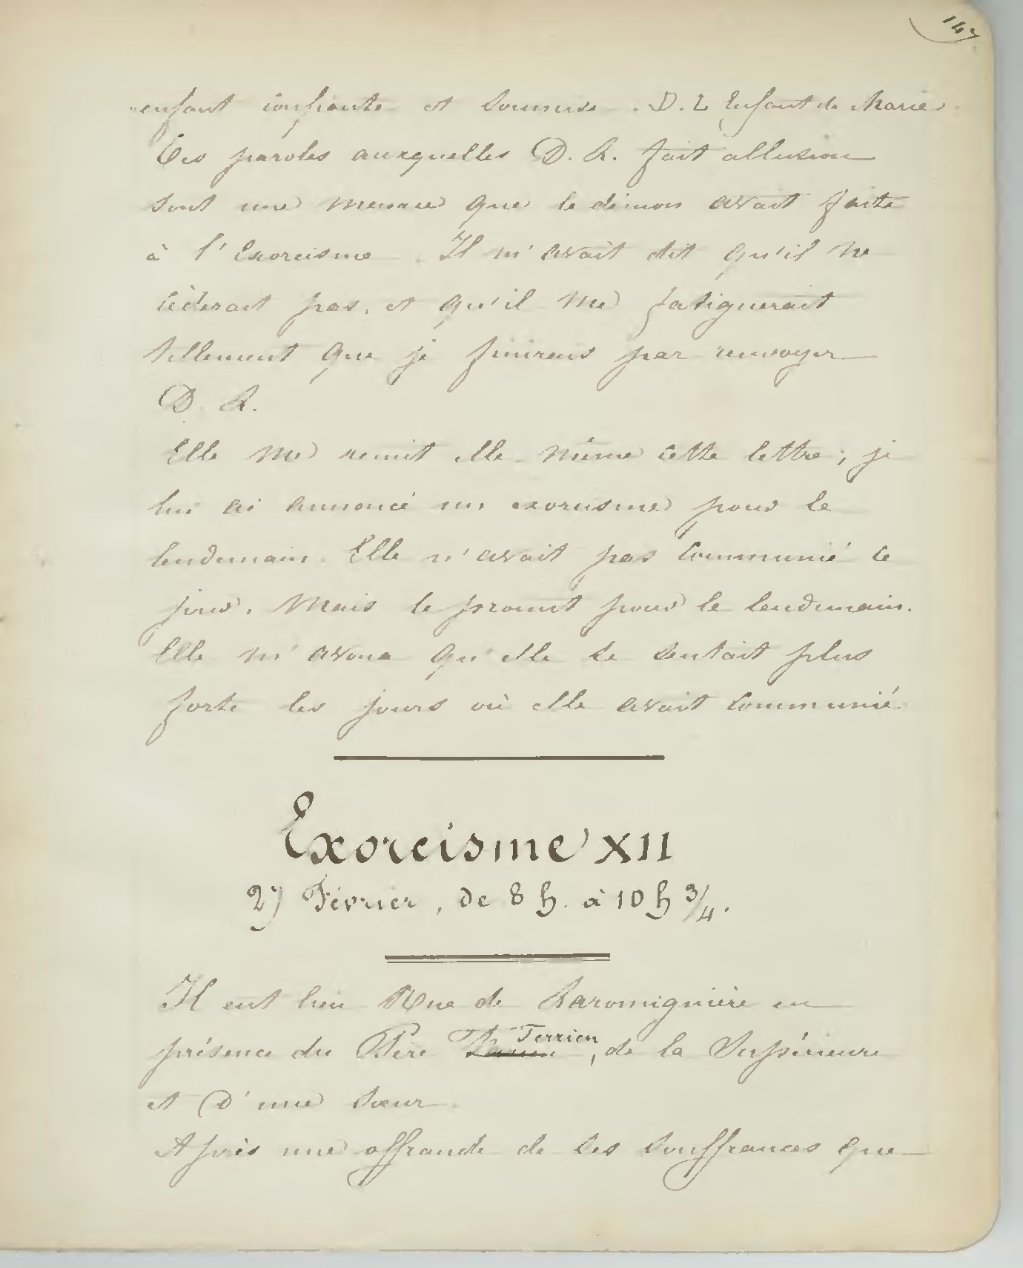 147
enfant confiante et soumise. D. L Enfant de Marie.
Ces paroles auxquelles D. R. fait allusion
sont une menace que le démon avait faite
à l'Exorcisme. Il m'avait dit qu'il ne
cèderait pas, et qu'il me fatiguerait
tellement que je finirais par renvoyer
D. R.
Elle me remit elle même cette lettre; je
lui ai annoncé un exorcisme pour le
lendemain. Elle n'avait pas communié ce
jour. Mais le promit pour le lendemain.
Elle m'avoua qu'elle se sentait plus
forte les jours où elle avait communié.
Exorcisme XII
27 Février, de 8 h. à 10 h 3/4.
Il eut lieu Rue de Laromiguière en
présence du Père Terrien, de la Supérieure
et d'une Sœur.
Après une offrande de ses souffrances que